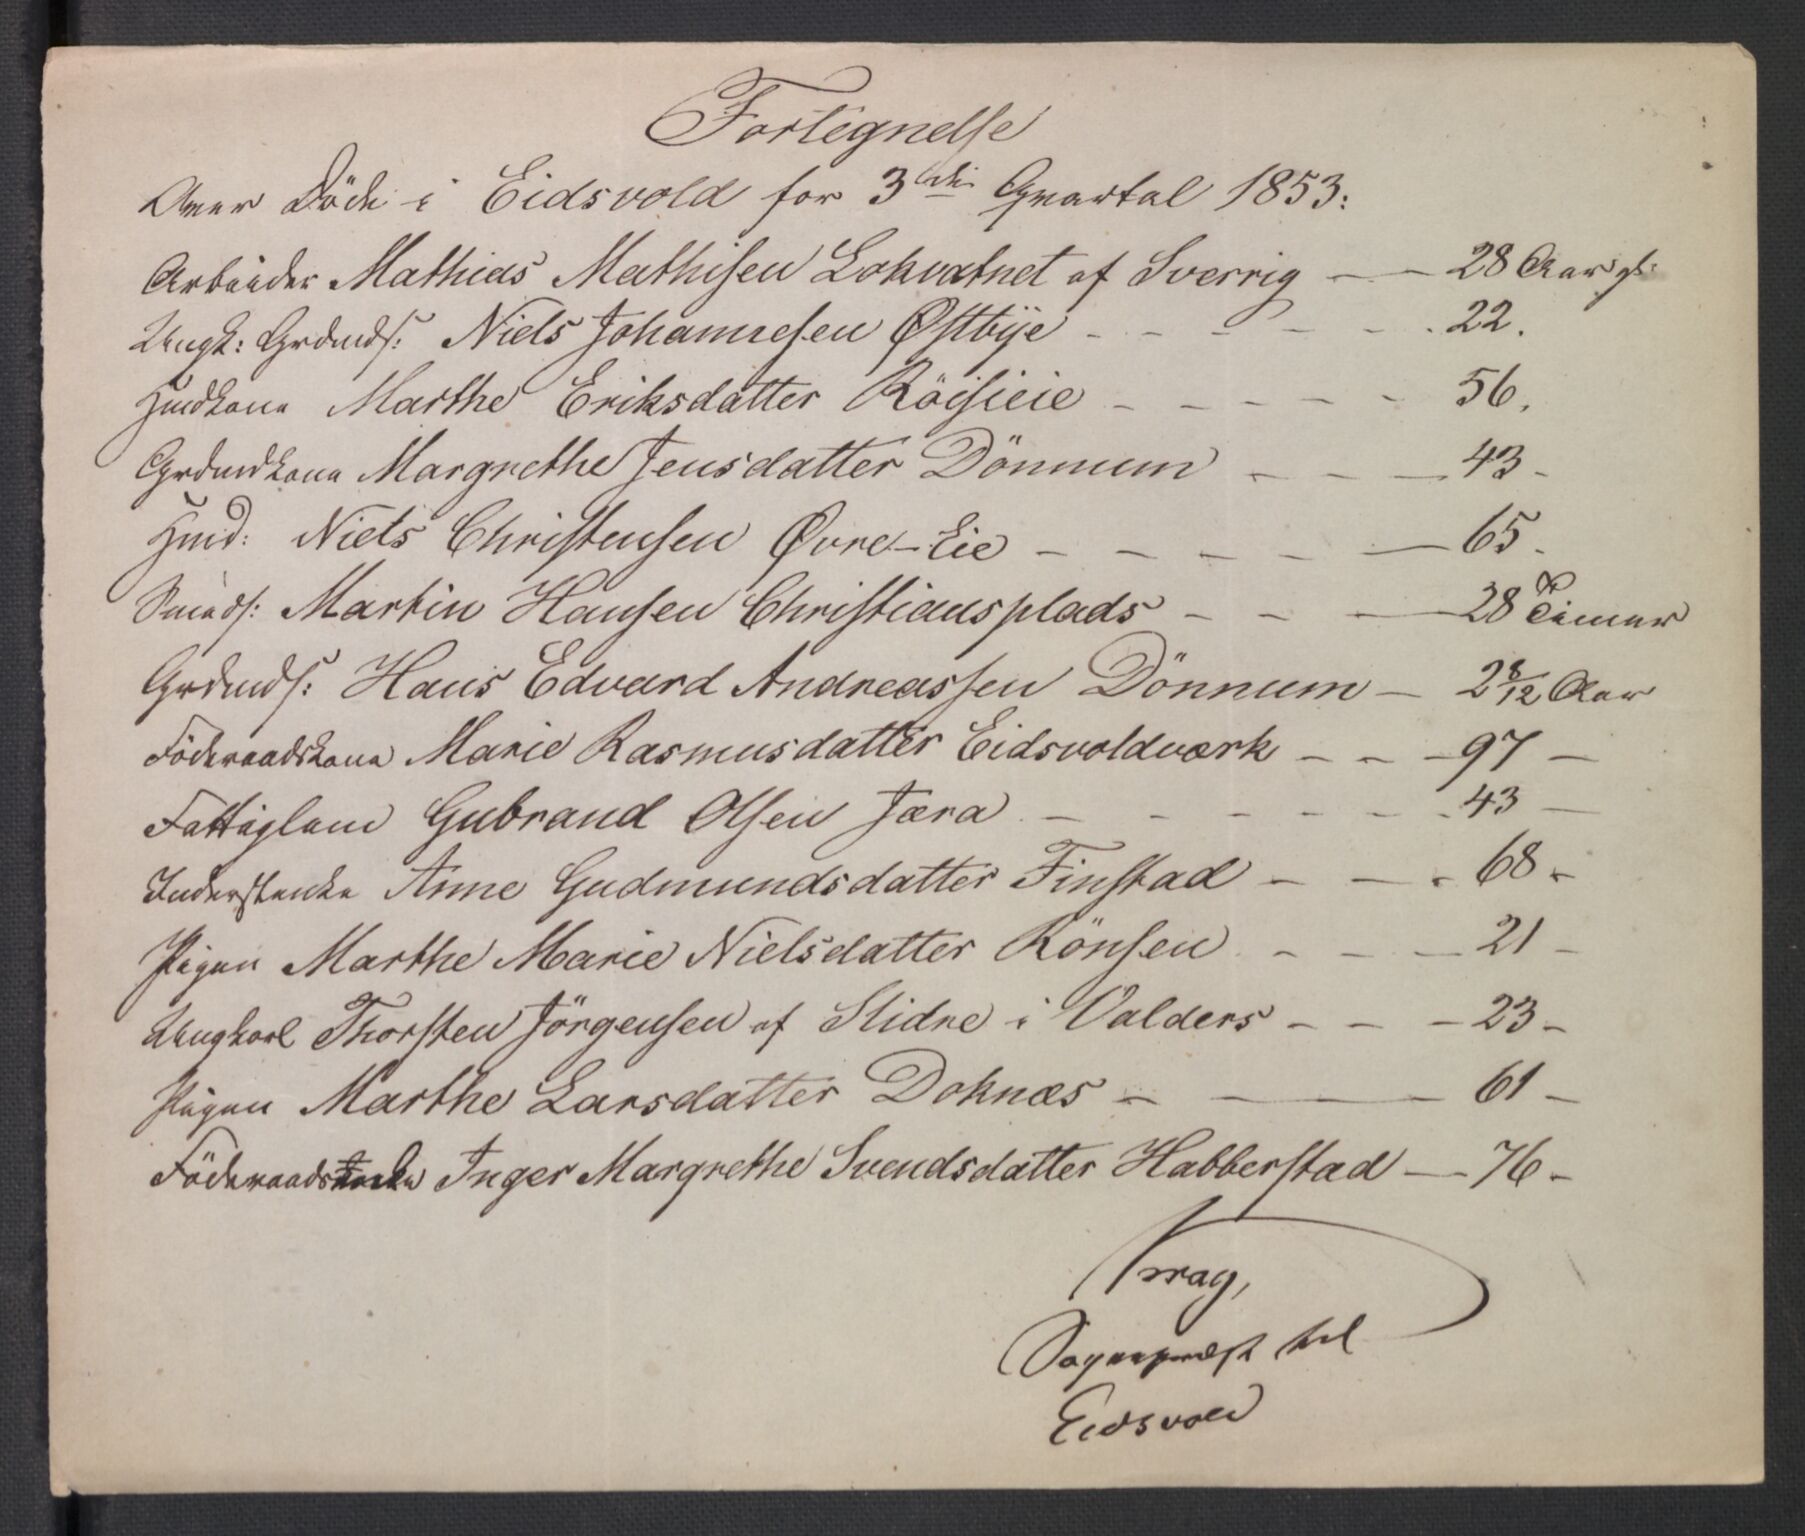 Fortegnelse
Over Döde i Eidsvold for 3die Qvartal 1853:
Arbeider Mathias Mathisen Lokvatnet af Sverrig — — 28 Aar gl:
Ungk: Grdmds: Niels Johannesen Østbye - - - - - - 22.
Hmdkone Marthe Eriksdatter Röisieie - - - - - 56.
Grdmdkone Margrethe Jensdatter Dönnum - - - 43 -
Hmd: Niels Christensen Øvre-Eie - - - - - 65 -
Smeds: Martin Hansen Christiansplads - - - 28 Timer
Grdmds: Hans Edvard Andreassen Dönnum - 2 8/12 Aar
Föderaadskone Marie Rasmusdatter Eidsvoldværk - - - 97 -
Fattiglem Gubrand Olsen Jæra - - - - - - 43 -
Inderstenke Anne Gudmundsdatter Finstad - - - 68 -
Pigen Marthe Marie Nielsdatter Rönsen - - - 21 -
Ungkarl Thorsten Jörgensen af Slidre i Valders - - - 23 -
Pigen Marthe Larsdatter Doknæs - - - 61 -
Föderaadsenke Inger Margrethe Svendsdatter Habberstad - 76 -
Krag,
Sognepræst til
Eidsvold